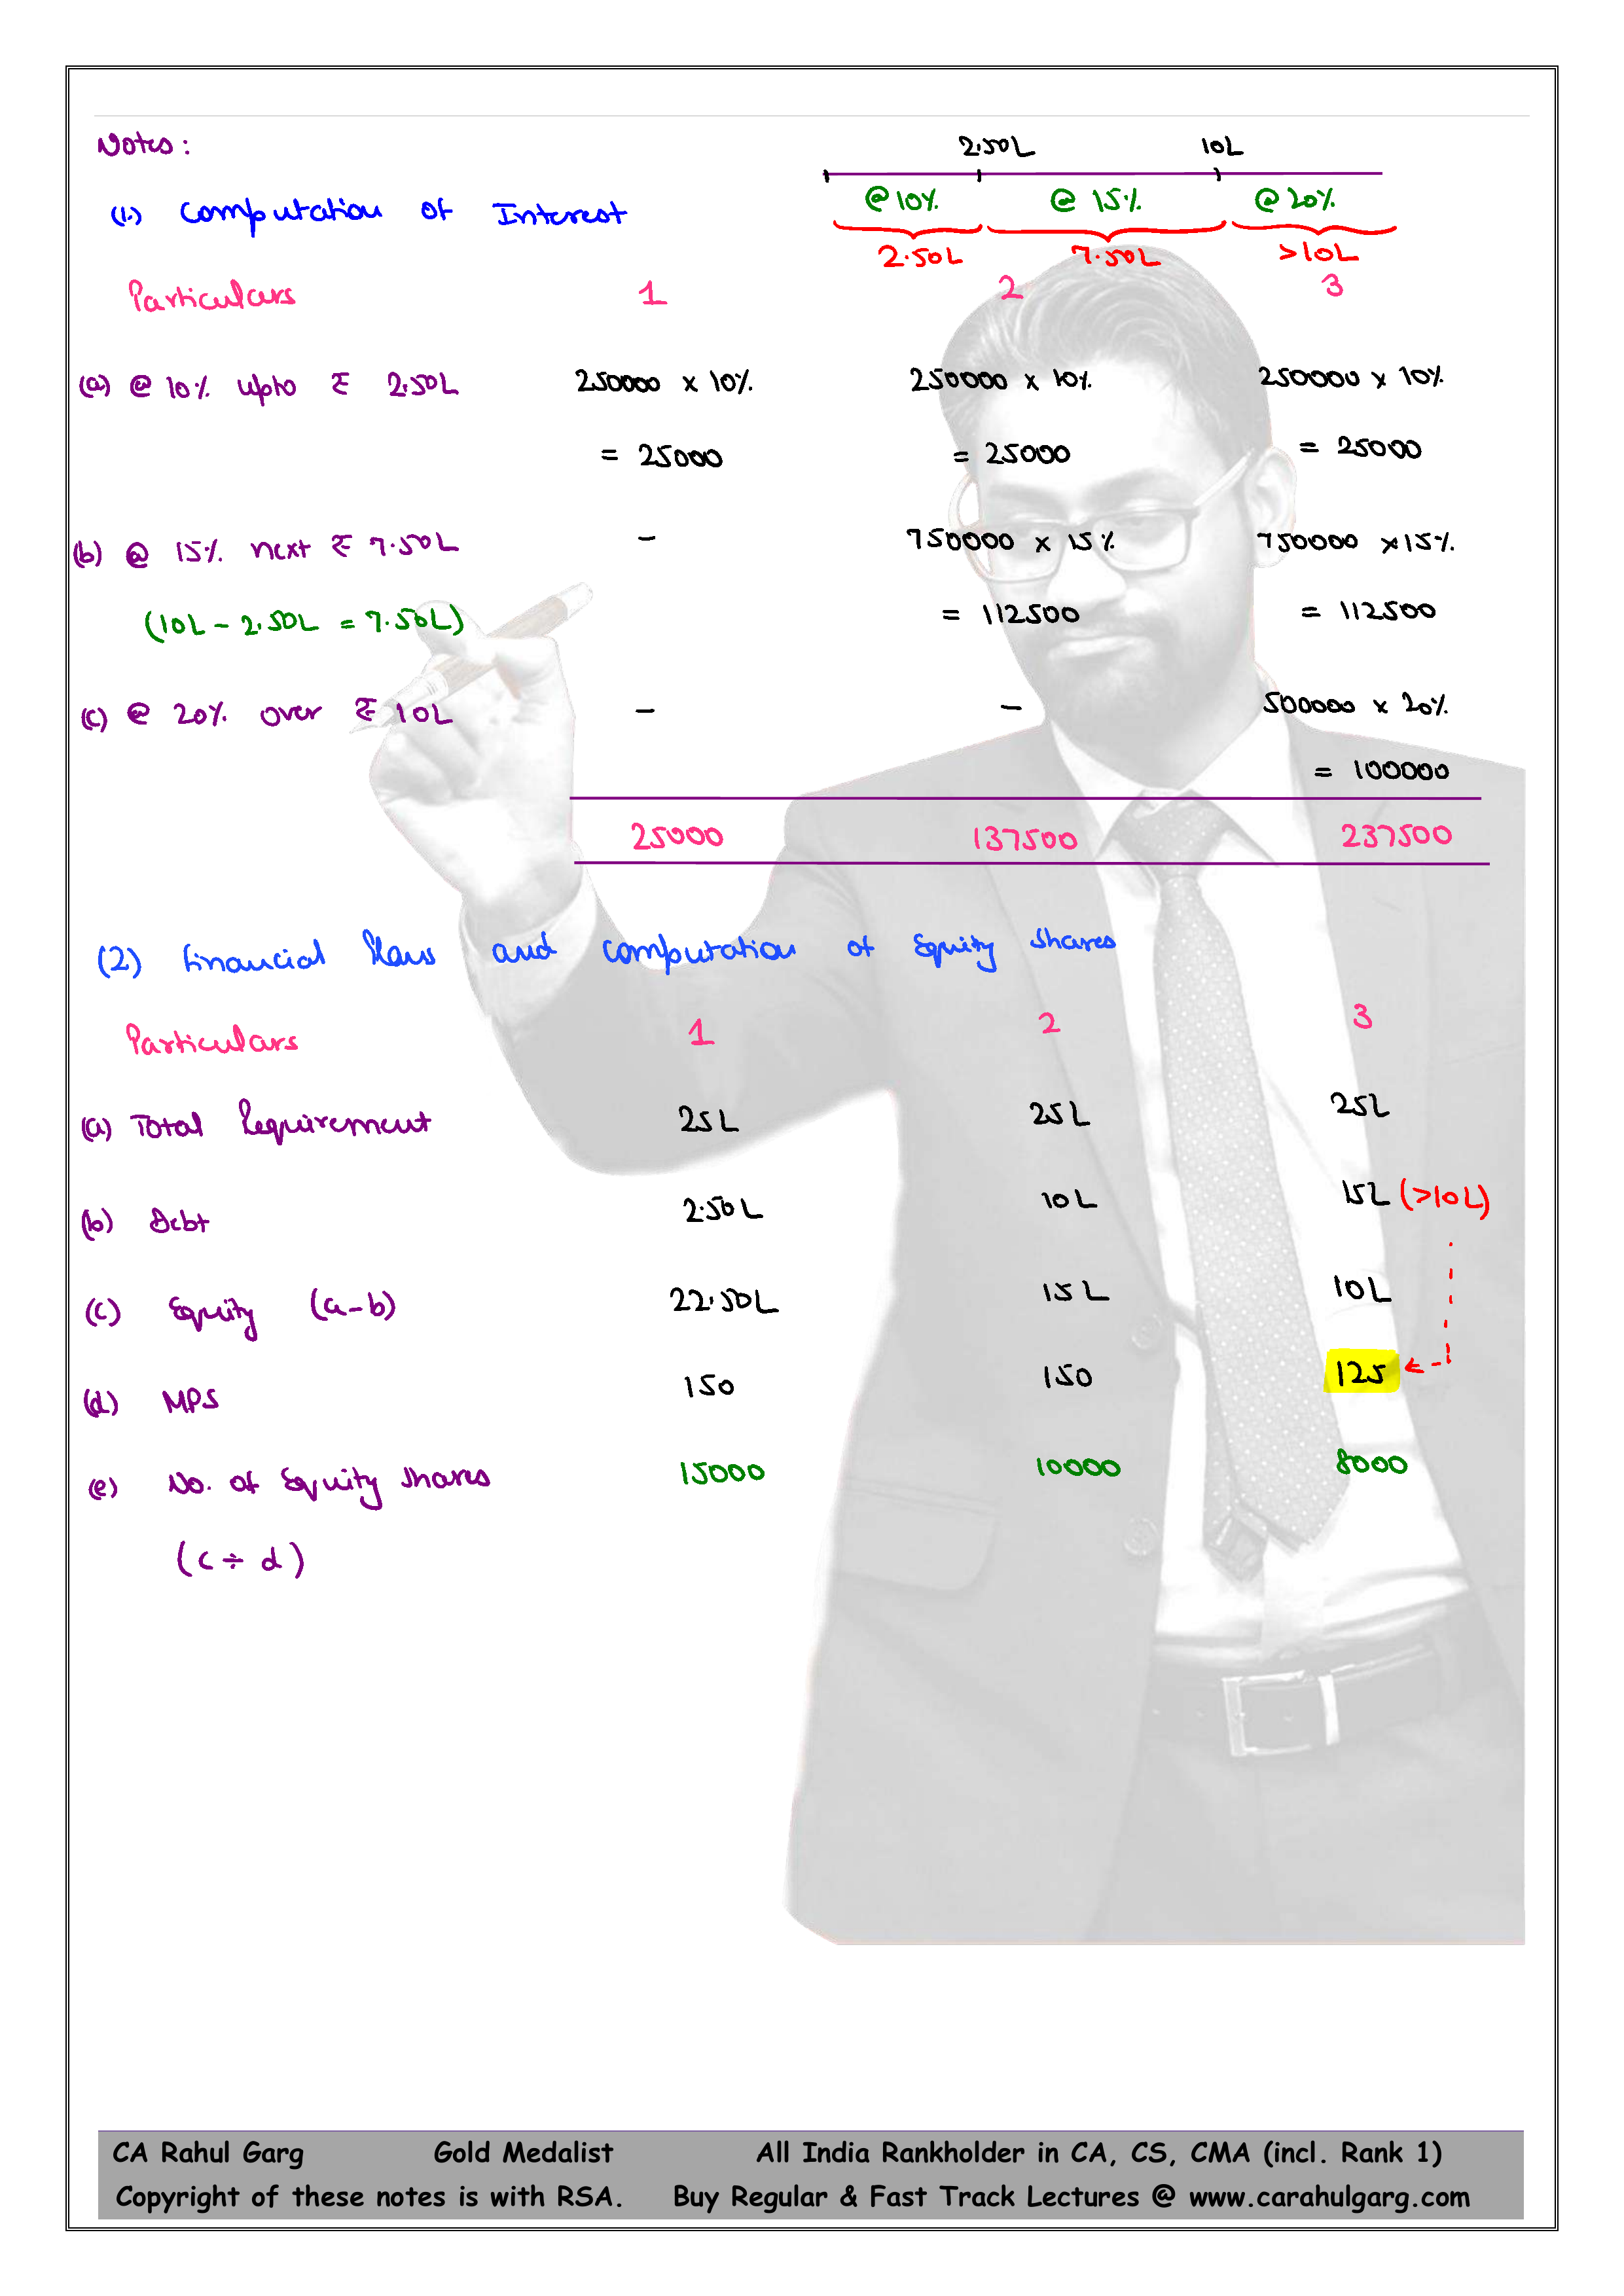 Notes :
2.50L 10L
(1.) Computation of Interest
@ 10% @ 15% @ 20%
2.50L 7.50L >10L
Particulars 1 2 3
(a) @ 10% upto ₹ 2.50L 250000 x 10% 250000 x 10% 250000 x 10%
= 25000 = 25000 = 25000
(b) @ 15% next ₹ 7.50L - 750000 x 15% 750000 x 15%
(10L - 2.50L = 7.50L) = 112500 = 112500
(c) @ 20% over ₹ 10L - - 500000 x 20%
= 100000
25000 137500 237500
(2) Financial Plans and Computation of Equity Shares
Particulars 1 2 3
(a) Total Requirement 25L 25L 25L
(b) Debt 2.50L 10L 15L (>10L)
(c) Equity (a-b) 22.50L 15L 10L
(d) MPS 150 150 125
(e) No. of Equity Shares 15000 10000 8000
(c ÷ d)
CA Rahul Garg Gold Medalist All India Rankholder in CA, CS, CMA (incl. Rank 1)
Copyright of these notes is with RSA. Buy Regular & Fast Track Lectures @ www.carahulgarg.com